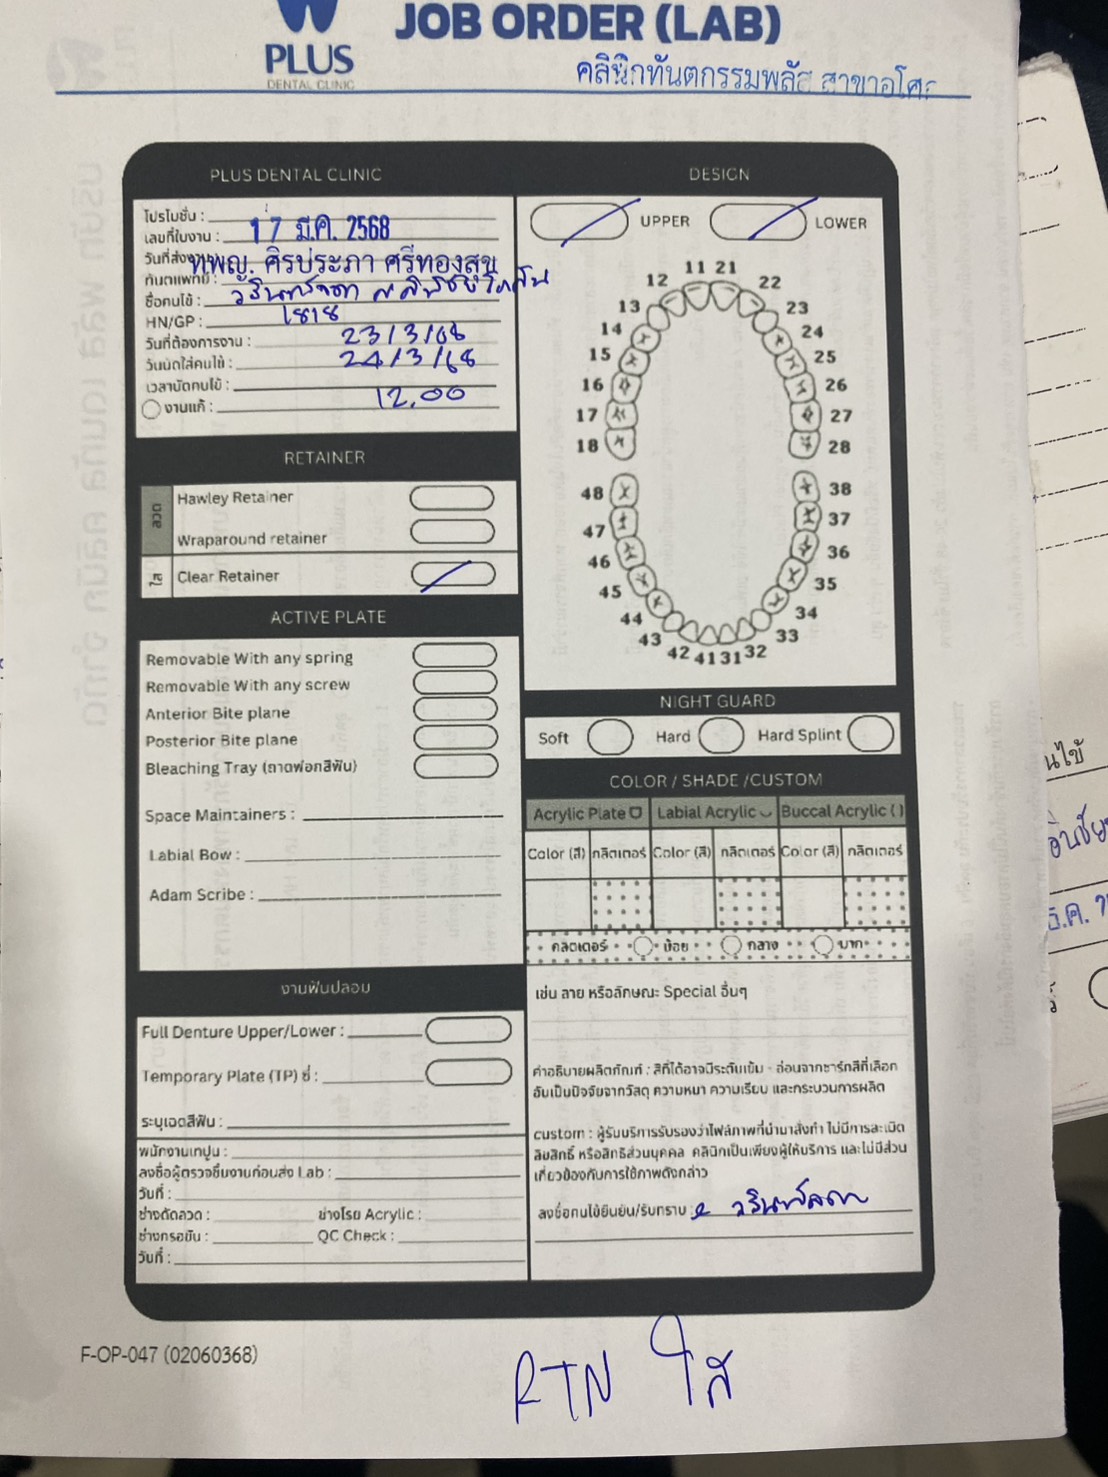 PLUS
DENTAL CLINIC
JOB ORDER (LAB)
คลินิกทันตกรรมพลัส สาขาอโศก
PLUS DENTAL CLINIC
โปรโมชั่น :
เลขที่ใบงาน : 17 มี.ค. 2568
วันที่ส่งงาน
ทันตแพทย์ : ทพญ. ศิรประภา ศรีทองสุข
ชื่อคนไข้ :
HN/GP : 1818
วันที่ต้องการงาน : 23/3/68
วันนัดใส่คนไข้ : 24/3/68
เวลานัดคนไข้ :
งานแก้ : 12.00
RETAINER
ลวด
Hawley Retainer
Wraparound retainer
ใส
Clear Retainer
ACTIVE PLATE
Removable With any spring
Removable With any screw
Anterior Bite plane
Posterior Bite plane
Bleaching Tray (ถาดฟอกสีฟัน)
Space Maintainers :
Labial Bow :
Adam Scribe :
งานฟันปลอม
Full Denture Upper/Lower :
Temporary Plate (TP) ซี่ :
ระบุเฉดสีฟัน :
พนักงานเทปูน :
ลงชื่อผู้ตรวจชิ้นงานก่อนส่ง Lab :
วันที่ :
ช่างดัดลวด : ช่างโรย Acrylic :
ช่างกรอขัน : QC Check :
วันที่ :
DESIGN
UPPER LOWER
11 21
12 22
13 23
14 24
15 25
16 26
17 27
18 28
48 38
47 37
46 36
45 35
44 34
43 33
42 41 31 32
NIGHT GUARD
Soft Hard Hard Splint
COLOR / SHADE /CUSTOM
Acrylic Plate Labial Acrylic Buccal Acrylic ( )
Color (สี) กลิตเตอร์ Color (สี) กลิตเตอร์ Color (สี) กลิตเตอร์
กลิตเตอร์ น้อย กลาง มาก
เช่น ลาย หรือลักษณะ Special อื่นๆ
คำอธิบายผลิตภัณฑ์ : สีที่ได้อาจมีระดับเข้ม - อ่อนจากชาร์ทสีที่เลือก
อันเป็นปัจจัยจากวัสดุ ความหนา ความเรียบ และกระบวนการผลิต
custom : ผู้รับบริการรับรองว่าไฟล์ภาพที่นำมาสั่งทำ ไม่มีการละเมิด
ลิขสิทธิ์ หรือสิทธิส่วนบุคคล คลินิกเป็นเพียงผู้ให้บริการ และไม่มีส่วน
เกี่ยวข้องกับการใช้ภาพดังกล่าว
ลงชื่อคนไข้ยืนยัน/รับทราบ :
F-OP-047 (02060368)
RTN ใส